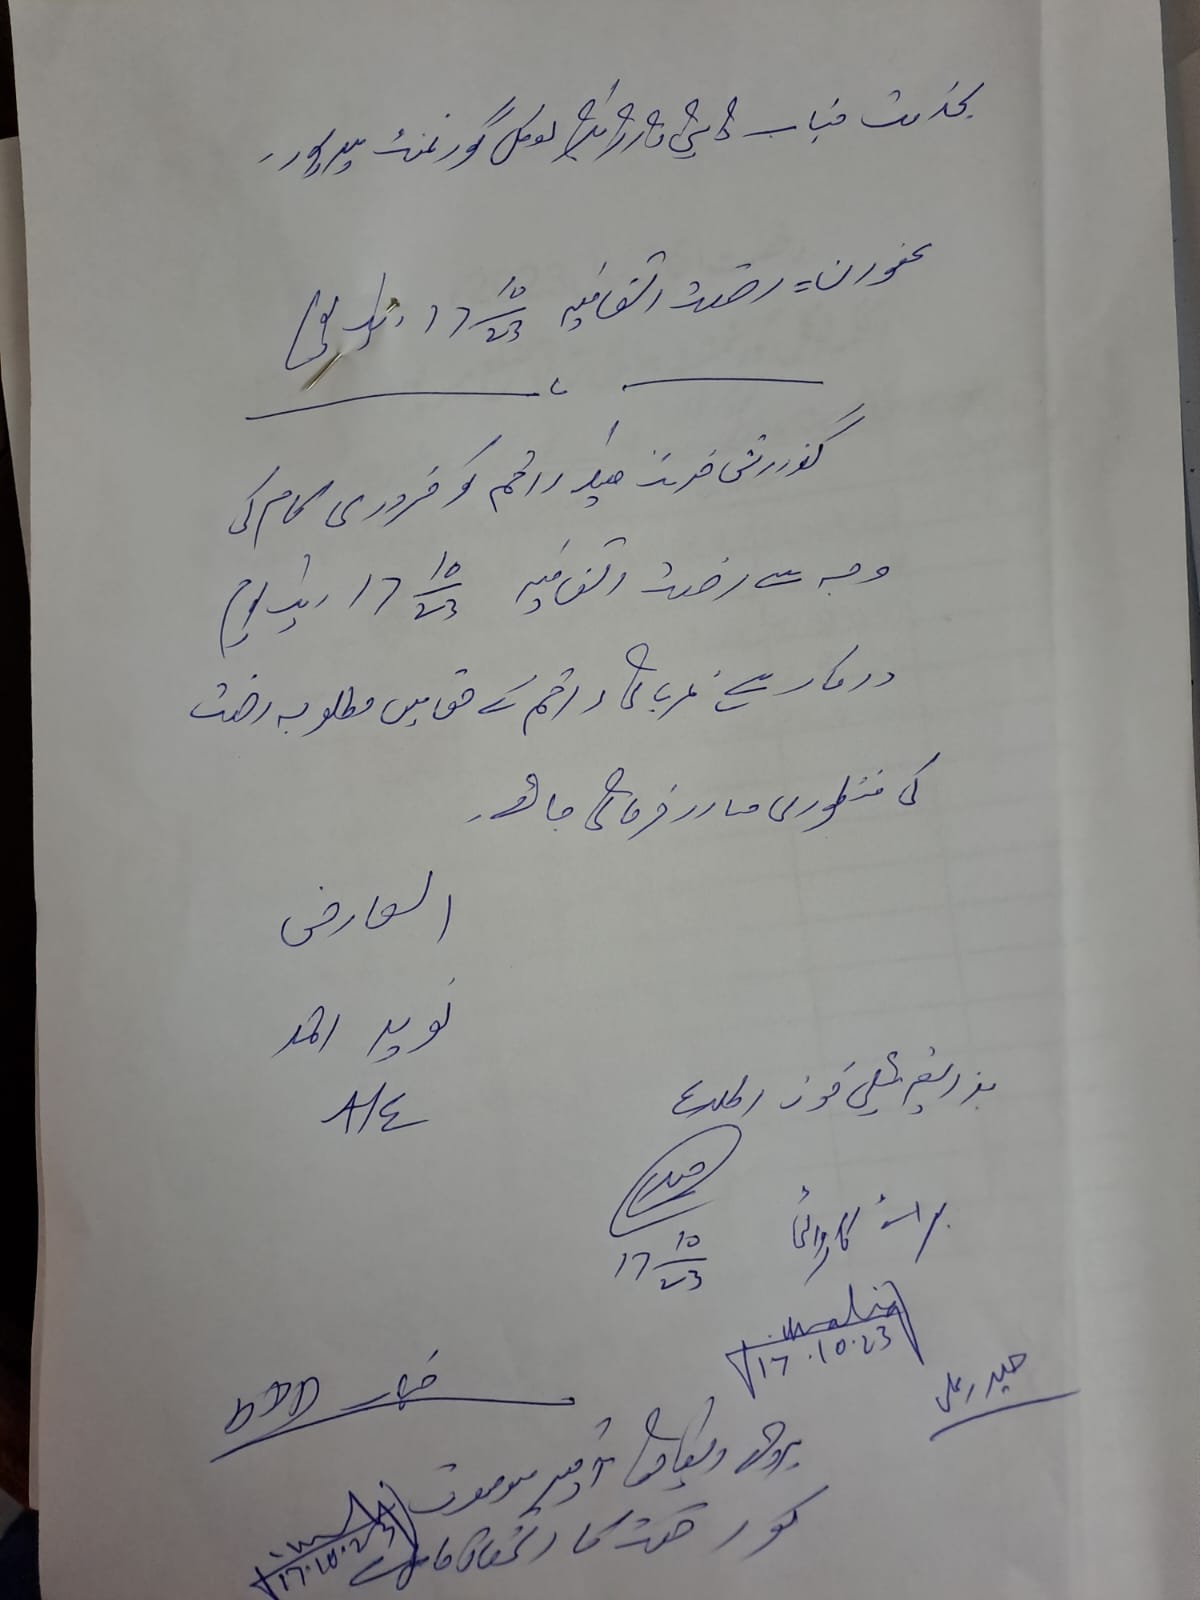 بخدمت جناب ڈپٹی ڈائریکٹر لوکل گورنمنٹ میرپور۔
عنوان = رخصت اتفاقیہ 17 10/23 ، یک یوم
گذارش خدمت ہیکہ راقم کو ضروری کام کی
وجہ سے رخصت اتفاقیہ 17 10/23 ، یک یوم
درکار ہے مہربانی راقم کے حق میں مطلوبہ رخصت
کی منظوری صادر فرمائی جائے۔
العارض
نوید احمد
A/E
بذریعہ ٹیلی فون اطلاع
17 10/23
برائے کاروائی
17.10.23
حیدر علی
جناب DDD
بروئے ریکارڈ آفیسر موصوف
کو رخصت کا استحقاق حاصل ہے
17.10.23